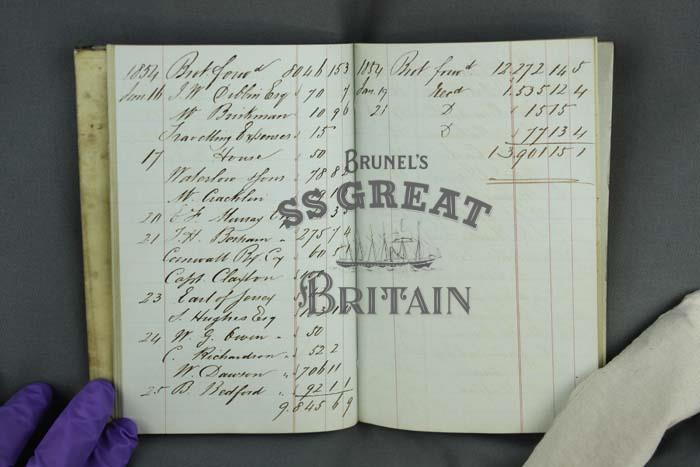 1854 Brot. forwd 8046 15 3
Jany 16 J W Esq 70 " 7
Mr Brinkman 10 9 6
Travelling Expenses 15
17 House 50
Waterlow Sons 78 8
Mr
20 E F Murray
21 J. H. 275 7 4
Cornwall Ry Cy 60 5
Capt. Claxton 100
23 Earl of Jersey
S. Hughes Esq
24 W. G. Owen 50
C. Richardson 52 2
W. Dawson 706 11
25 B. Bedford 92 1 1
9.845 6 9
1854 Brot forwd 12,272 14 5
Jan. 19 Recd 1.535 12 4
21 D 15 15
D 77 13 4
13,901 15 1
BRUNEL'S
SS GREAT
BRITAIN